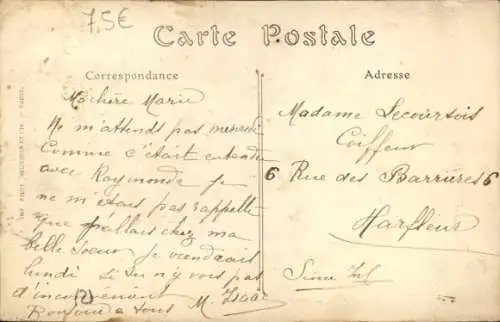 7,5€
Carte Postale
Correspondance
Adresse
Ma chère Marie
Ne m'attends pas mercredi
Comme c'était entendu
avec Raymonde je
ne m'étais pas rappelé
que j'allais chez ma
belle sœur je viendrais
lundi si tu n'y vois pas
d'inconvénient
Bonjour à tous M. Isaac
Madame Lecourtois
Coiffeur
6 Rue des Barrières 6
Harfleur
Seine Inf